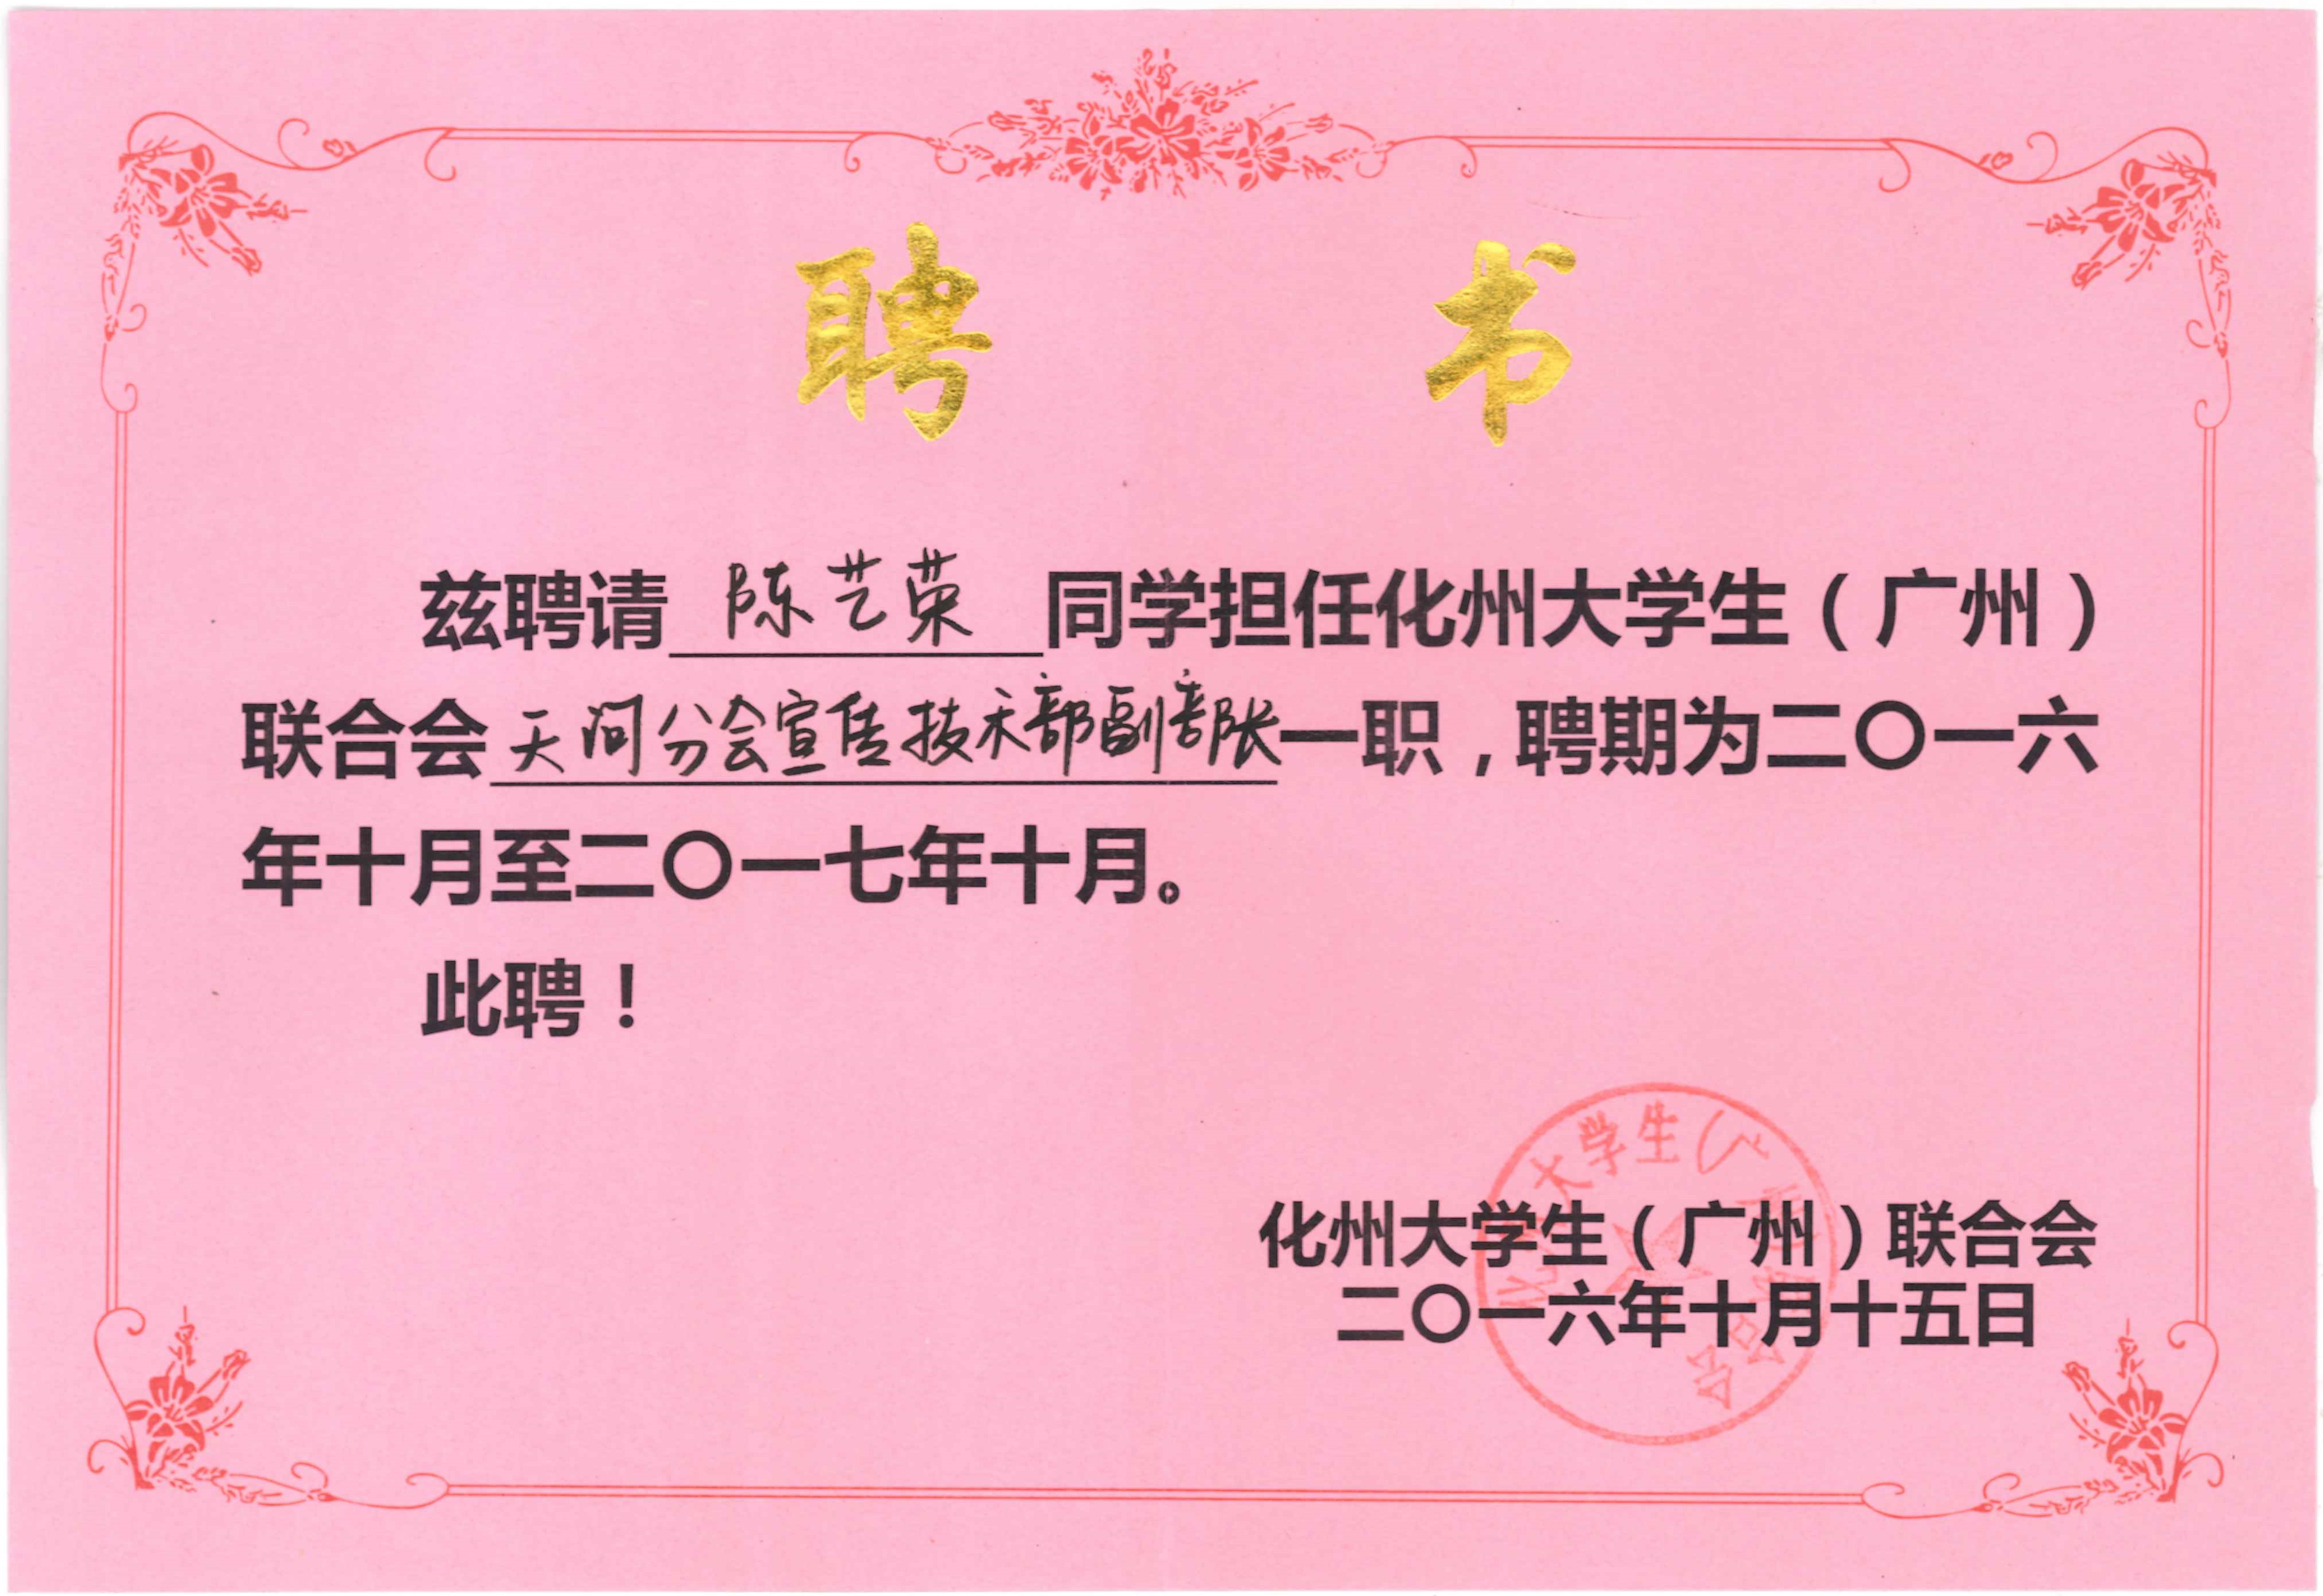 聘书
兹聘请 陈艺荣 同学担任化州大学生（广州）
联合会天问分会宣传技术部副部长一职，聘期为二〇一六
年十月至二〇一七年十月。
此聘！
化州大学生（广州）联合会
二〇一六年十月十五日
大学生（
合会